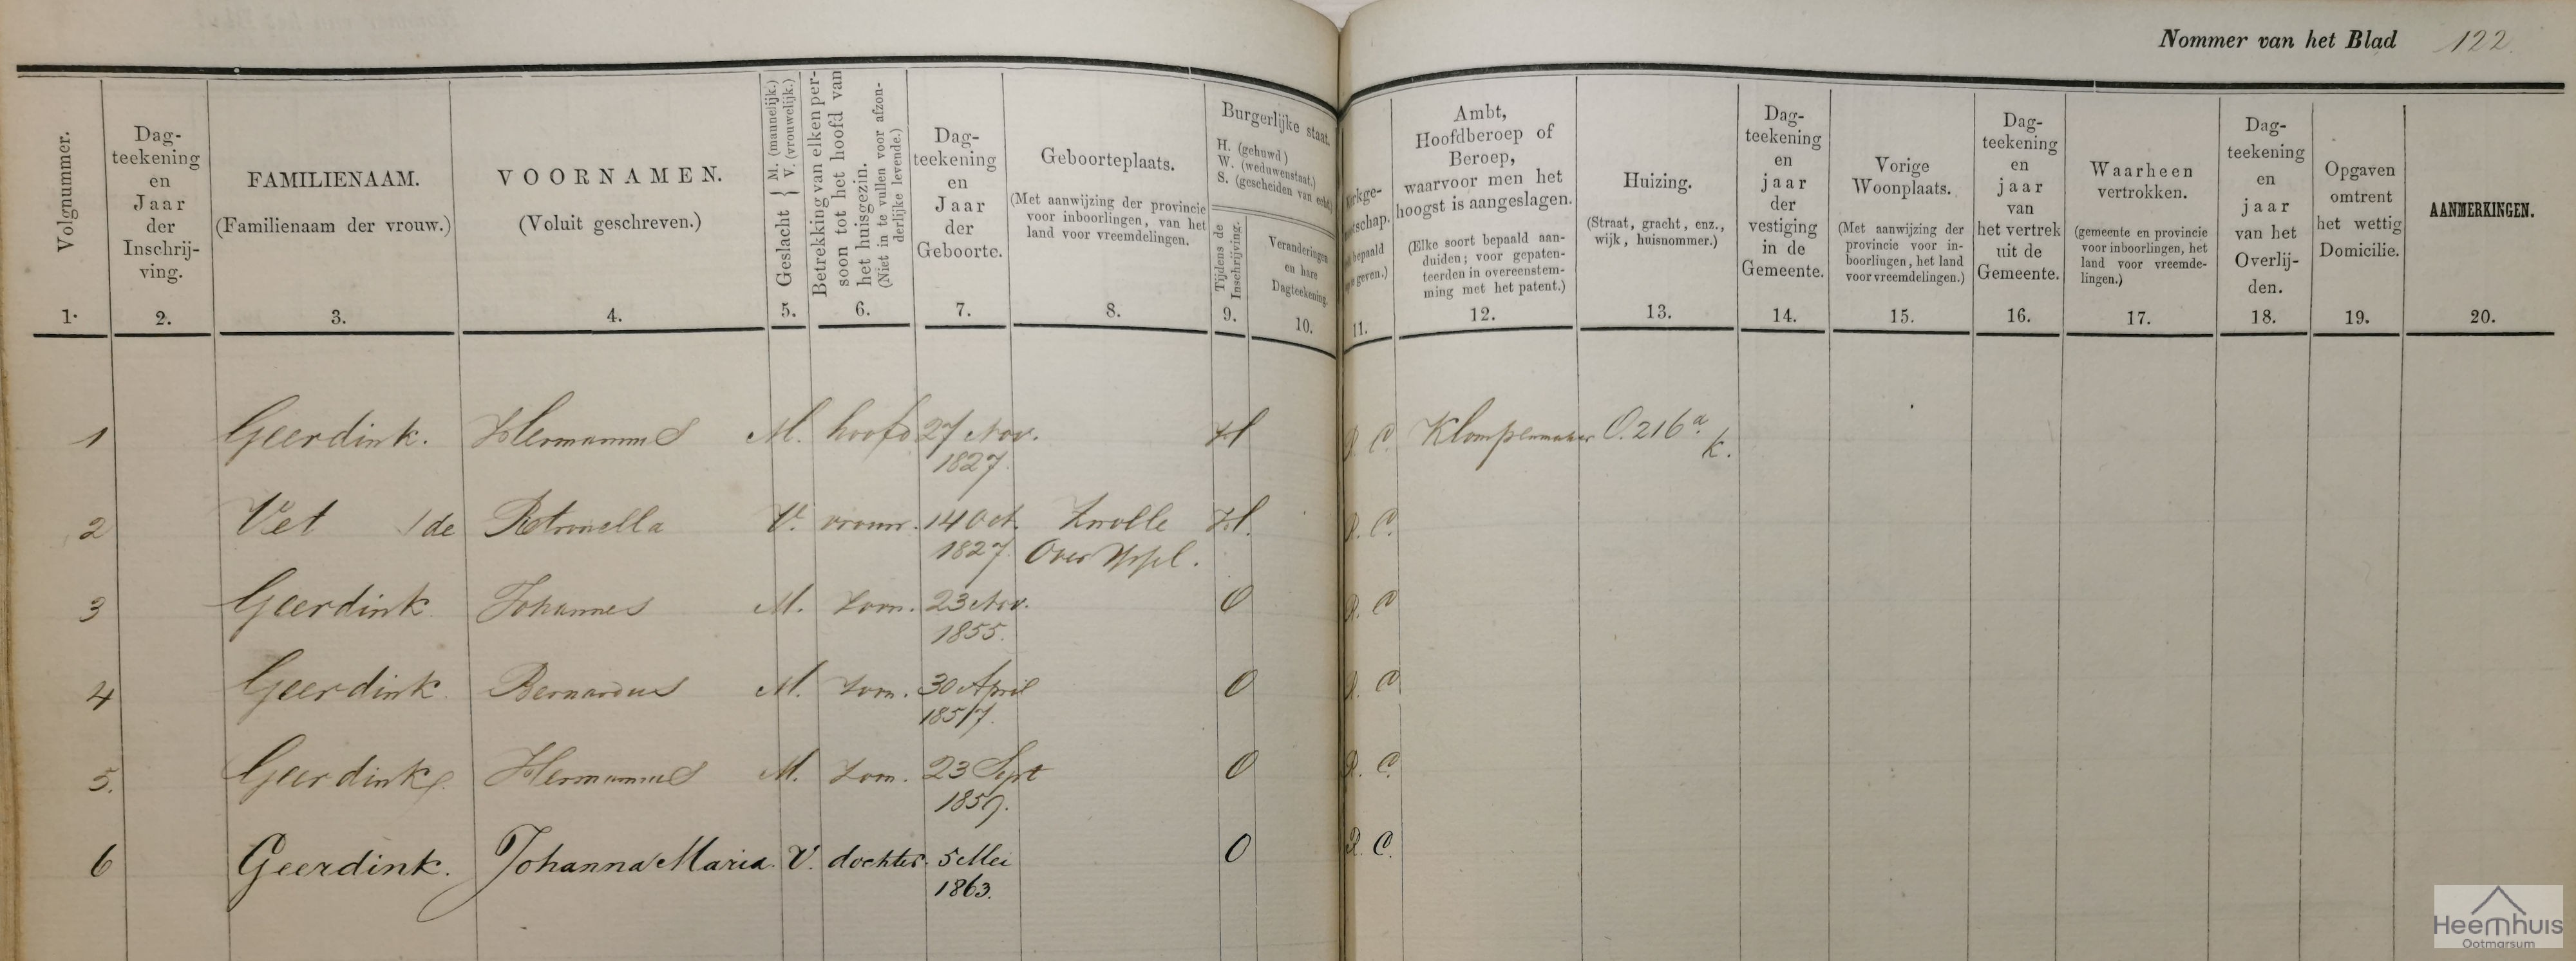 Nommer van het Blad 122
Volgnummer.
1.
Dag-
teekening
en
Jaar
der
Inschrij-
ving.
2.
FAMILIENAAM.
(Familienaam der vrouw.)
3.
VOORNAMEN.
(Voluit geschreven.)
4.
Geslacht { M. (mannelijk.)
V. (vrouwelijk.)
5.
Betrekking van elken per-
soon tot het hoofd van
het huisgezin.
(Niet in te vullen voor afzon-
derlijke levende.)
6.
Dag-
teekening
en
Jaar
der
Geboorte.
7.
Geboorteplaats.
(Met aanwijzing der provincie
voor inboorlingen, van het
land voor vreemdelingen.
8.
Burgerlijke staat.
H. (gehuwd)
W. (weduwenstaat.)
S. (gescheiden van echt.)
Tijdens de
Inschrijving.
9.
Veranderingen
en hare
Dagteekening.
10.
11.
Ambt,
Hoofdberoep of
Beroep,
waarvoor men het
hoogst is aangeslagen.
(Elke soort bepaald aan-
duiden; voor gepaten-
teerden in overeenstem-
ming met het patent.)
12.
Huizing.
(Straat, gracht, enz.,
wijk, huisnommer.)
13.
Dag-
teekening
en
jaar
der
vestiging
in de
Gemeente.
14.
Vorige
Woonplaats.
(Met aanwijzing der
provincie voor in-
boorlingen, het land
voor vreemdelingen.)
15.
Dag-
teekening
en
jaar
van
het vertrek
uit de
Gemeente.
16.
Waarheen
vertrokken.
(gemeente en provincie
voor inboorlingen, het
land voor vreemde-
lingen.)
17.
Dag-
teekening
en
jaar
van het
Overlij-
den.
18.
Opgaven
omtrent
het wettig
Domicilie.
19.
AANMERKINGEN.
20.
1 Geerdink. Hermannus M. hoofd 27 Nov. H R. C. Klompenmaker O. 216a k.
1827.
2 Vet /de Petronella V. vrouw. 14 Oct. Zwolle H. R. C.
1827. Over Yssel.
3 Geerdink Johannes M. zoon. 23 Nov. O R. C
1855.
4 Geerdink. Bernardus M. zoon. 30 April O R. C
1857.
5. Geerdink Hermannus M. zoon. 23 Sept O R. C.
1859.
6 Geerdink. Johanna Maria V. dochter. 5 Mei O R. C.
1863.
Heemhuis
Ootmarsum